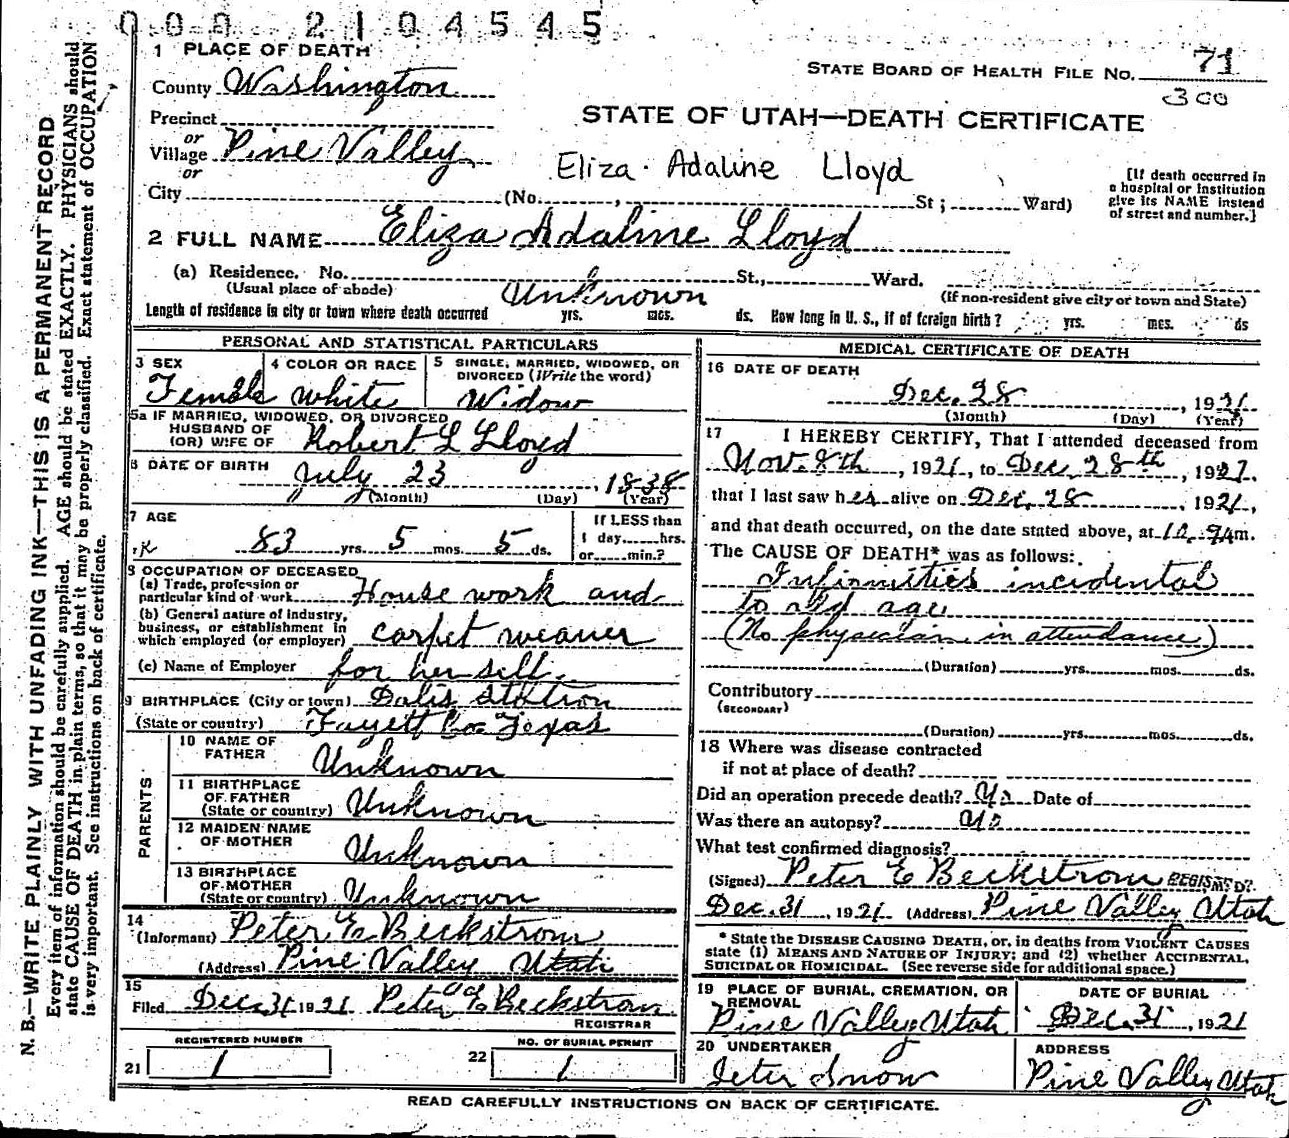 000 2104545
1 PLACE OF DEATH
STATE BOARD OF HEALTH FILE NO. 71
County Washington
300
STATE OF UTAH—DEATH CERTIFICATE
Precinct
or
Village Pine Valley
or
Eliza Adaline Lloyd
[If death occurred in
a hospital or institution
give its NAME instead
of street and number.]
City (No. , St; Ward)
2 FULL NAME Eliza Adaline Lloyd
(a) Residence. No. St., Ward.
(Usual place of abode)
(If non-resident give city or town and State)
Unknown
Length of residence in city or town where death occurred yrs. mos. ds. How long in U. S., if of foreign birth? yrs. mos. ds
PERSONAL AND STATISTICAL PARTICULARS
3 SEX
Female
4 COLOR OR RACE
white
5 SINGLE, MARRIED, WIDOWED, OR
DIVORCED (Write the word)
Widow
5a IF MARRIED, WIDOWED, OR DIVORCED
HUSBAND OF
(OR) WIFE OF Robert L Lloyd
6 DATE OF BIRTH
July 23, 1838
(Month) (Day) (Year)
7 AGE
83 yrs. 5 mos. 5 ds.
If LESS than
1 day hrs.
or min.?
8 OCCUPATION OF DECEASED
(a) Trade, profession or
particular kind of work House work and
(b) General nature of industry,
business, or establishment in
which employed (or employer) carpet weaver
(c) Name of Employer for her self.
9 BIRTHPLACE (City or town) Dalis Station
(State or country) Fayett Co. Texas
PARENTS
10 NAME OF
FATHER Unknown
11 BIRTHPLACE
OF FATHER
(State or country) Unknown
12 MAIDEN NAME
OF MOTHER Unknown
13 BIRTHPLACE
OF MOTHER
(State or country) Unknown
14
(Informant) Peter E Beckstrom
(Address) Pine Valley Utah
15
Filed Dec. 31 1921 Peter E Beckstrom
REGISTRAR
REGISTERED NUMBER
21 1
NO. OF BURIAL PERMIT
22 1
MEDICAL CERTIFICATE OF DEATH
16 DATE OF DEATH
Dec. 28, 1921
(Month) (Day) (Year)
17 I HEREBY CERTIFY, That I attended deceased from
Nov. 8th, 1921, to Dec. 28th, 1921.
that I last saw her alive on Dec. 28 1921,
and that death occurred, on the date stated above, at m.
The CAUSE OF DEATH* was as follows:
Infirmities incidental
to old age
(No physician in attendance)
(Duration) yrs. mos. ds.
Contributory
(SECONDARY)
(Duration) yrs. mos. ds.
18 Where was disease contracted
if not at place of death?
Did an operation precede death? No Date of
Was there an autopsy? No
What test confirmed diagnosis?
(Signed) Peter E Beckstrom
Dec. 31, 1921 (Address) Pine Valley Utah
* State the DISEASE CAUSING DEATH, or, in deaths from VIOLENT CAUSES
state (1) MEANS AND NATURE OF INJURY; and (2) whether ACCIDENTAL,
SUICIDAL OR HOMICIDAL. (See reverse side for additional space.)
19 PLACE OF BURIAL, CREMATION, OR
REMOVAL
Pine Valley Utah
DATE OF BURIAL
Dec. 31, 1921
20 UNDERTAKER
Jeter Snow
ADDRESS
Pine Valley Utah
READ CAREFULLY INSTRUCTIONS ON BACK OF CERTIFICATE.
N. B.—WRITE PLAINLY WITH UNFADING INK—THIS IS A PERMANENT RECORD
Every item of information should be carefully supplied. AGE should be stated EXACTLY. PHYSICIANS should
state CAUSE OF DEATH in plain terms, so that it may be properly classified. Exact statement of OCCUPATION
is very important. See instructions on back of certificate.